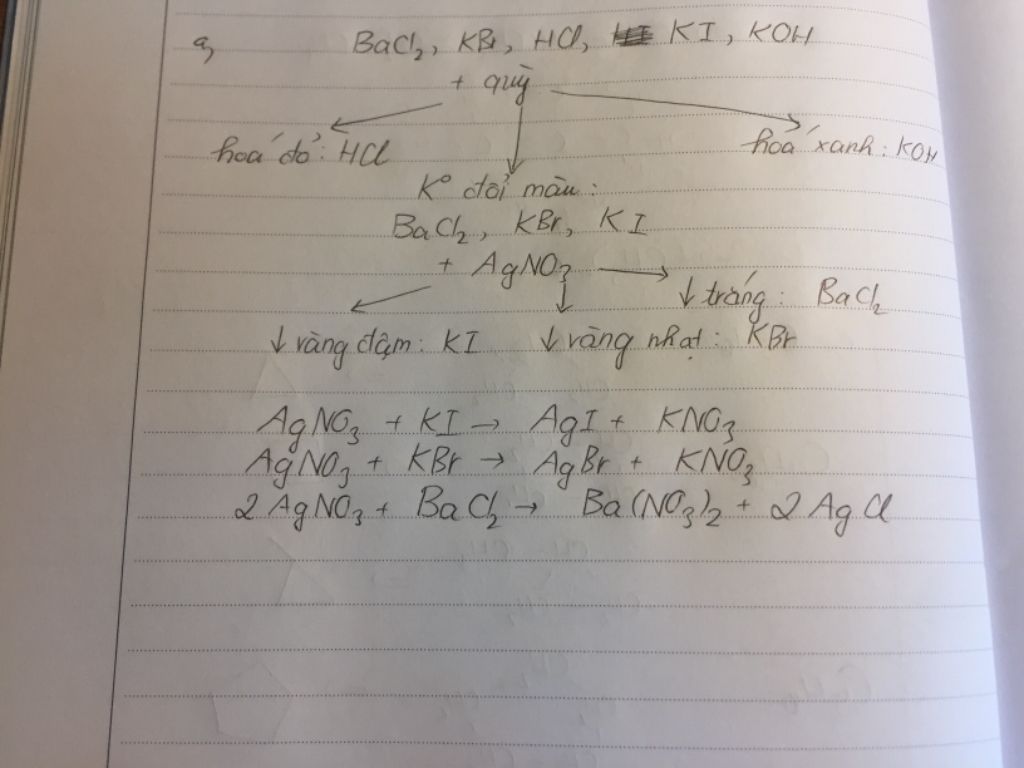 a, BaCl₂, KBr, HCl, KI, KOH
+ quỳ
hoá đỏ: HCl
hoá xanh: KOH
K° đổi màu:
BaCl₂, KBr, KI
+ AgNO₃
↓ trắng: BaCl₂
↓ vàng đậm: KI ↓ vàng nhạt: KBr
AgNO₃ + KI → AgI + KNO₃
AgNO₃ + KBr → AgBr + KNO₃
2 AgNO₃ + BaCl₂ → Ba(NO₃)₂ + 2 AgCl